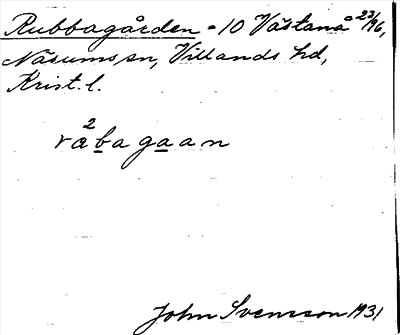 Rubbagården - 10 Västanå 23/96,
Näsums sn, Villands hd,
Krist. l.
2
rabagaan
John Svensson 1931